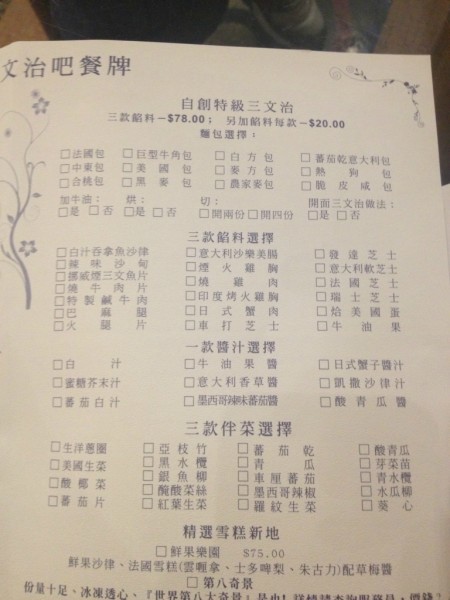 文治吧餐牌
自創特級三文治
三款餡料－$78.00； 另加餡料每款－$20.00
麵包選擇：
□法國包 □巨型牛角包 □白方包 □蕃茄乾意大利包
□中東包 □美國包 □麥方包 □熱狗包
□合桃包 □黑麥包 □農家麥包 □脆皮咸包
加牛油： 烘： 切： 開面三文治做法：
□是 □否 □是 □否 □開兩份 □開四份 □是 □否
三款餡料選擇
□白汁吞拿魚沙律 □意大利沙樂美腸 □發達芝士
□辣味沙甸 □煙火雞胸 □意大利軟芝士
□挪威煙三文魚片 □燒雞肉 □法國芝士
□燒牛肉片 □印度烤火雞胸 □瑞士芝士
□特製鹹牛肉 □日式蟹肉 □烚美國蛋
□巴麻腿 □車打芝士 □牛油果
□火腿片
一款醬汁選擇
□白汁 □牛油果醬 □日式蟹子醬汁
□蜜糖芥末汁 □意大利香草醬 □凱撒沙律汁
□蕃茄白汁 □墨西哥辣味蕃茄醬 □酸青瓜醬
三款伴菜選擇
□生洋蔥圈 □亞枝竹 □蕃茄乾 □酸青瓜
□美國生菜 □黑水欖 □青瓜 □芽菜苗
□酸椰菜 □銀魚柳 □車厘蕃茄 □青水欖
□蕃茄片 □醃酸菜絲 □墨西哥辣椒 □水瓜柳
□紅葉生菜 □羅紋生菜 □葵心
精選雪糕新地
□鮮果樂園 $75.00
鮮果沙律、法國雪糕(雲喱拿、士多啤梨、朱古力)配草莓醬
□第八奇景
份量十足、冰凍透心、『世界第八大奇景』是也! 詳情請查詢服務員，價錢？